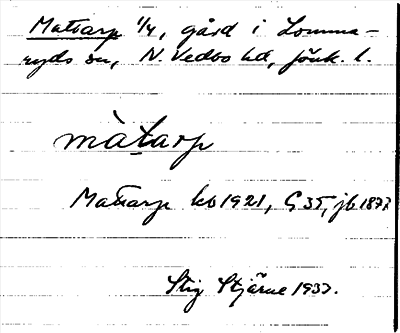 Mattarp 1/4, gård i Lomma-
ryds sn, N. Vedbo hd, Jönk. l.
màtarp
Mattarp kb 1921, G 35, jb 1877
Stig Stjärne 1937.